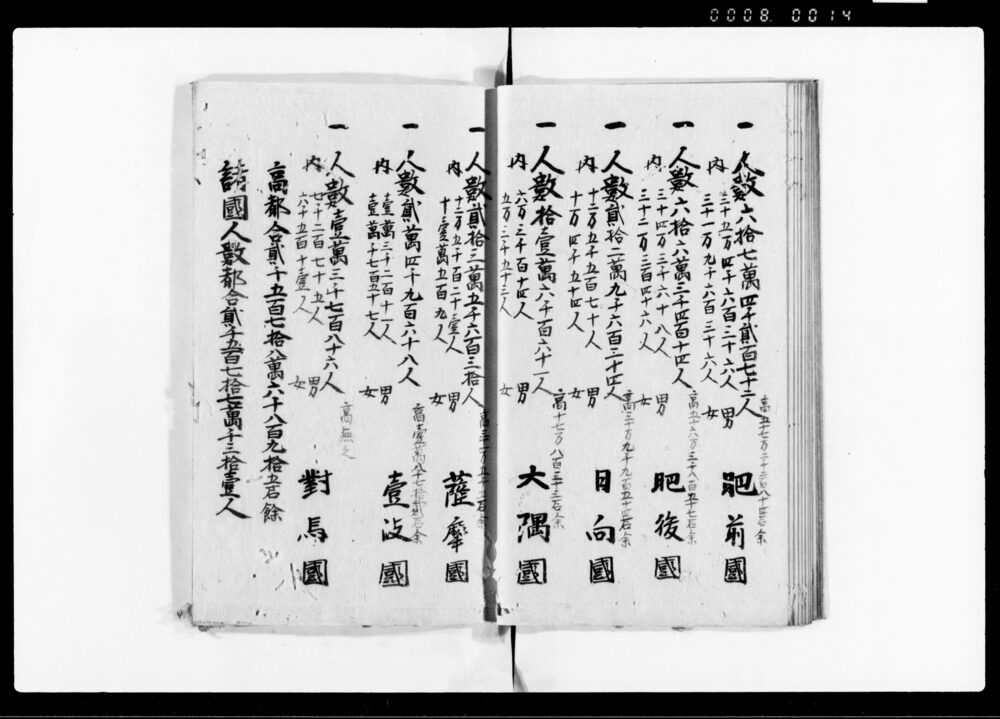 0008 0014
一 人数六拾七萬四千貳百七十二人
高五十七万二千二百八十四石余
内 三十五万四千六百三十六人 男
三十一万九千六百三十六人 女
肥前國
一 人數六拾六萬三千四百十四人
高五十六万三千八百五十七石余
内 三十四万三千六十八人 男
三十二万三百四十六人 女
肥後國
一 人數貳拾二萬九千六百二十四人
高三十万九千九百五十四石余
内 十二万五千五百七十人 男
十万四千五十四人 女
日向國
一 人數拾壹萬六千百六十一人
高十七万八百三十三石余
内 六万三千百十四人 男
五万三千 人 女
大隅國
一 人數貳拾三萬五千六百三拾人
高三十一万五千五石余
内 十二万五千百二十壹人 男
十壹萬五百九人 女
薩摩國
一 人數貳萬四千九百六十八人
高壹萬八千七拾貳石余
内 壹萬三千二百十一人 男
壹萬千七百五十七人 女
壹岐國
一 人數壹萬三千七百八十六人
高無之
内 七千二百七十五人 男
六千五百十壹人 女
對馬國
高都合貳千五百七拾八萬六千八百九拾五石餘
諸國人數都合貳千五百七拾七萬千三拾壹人